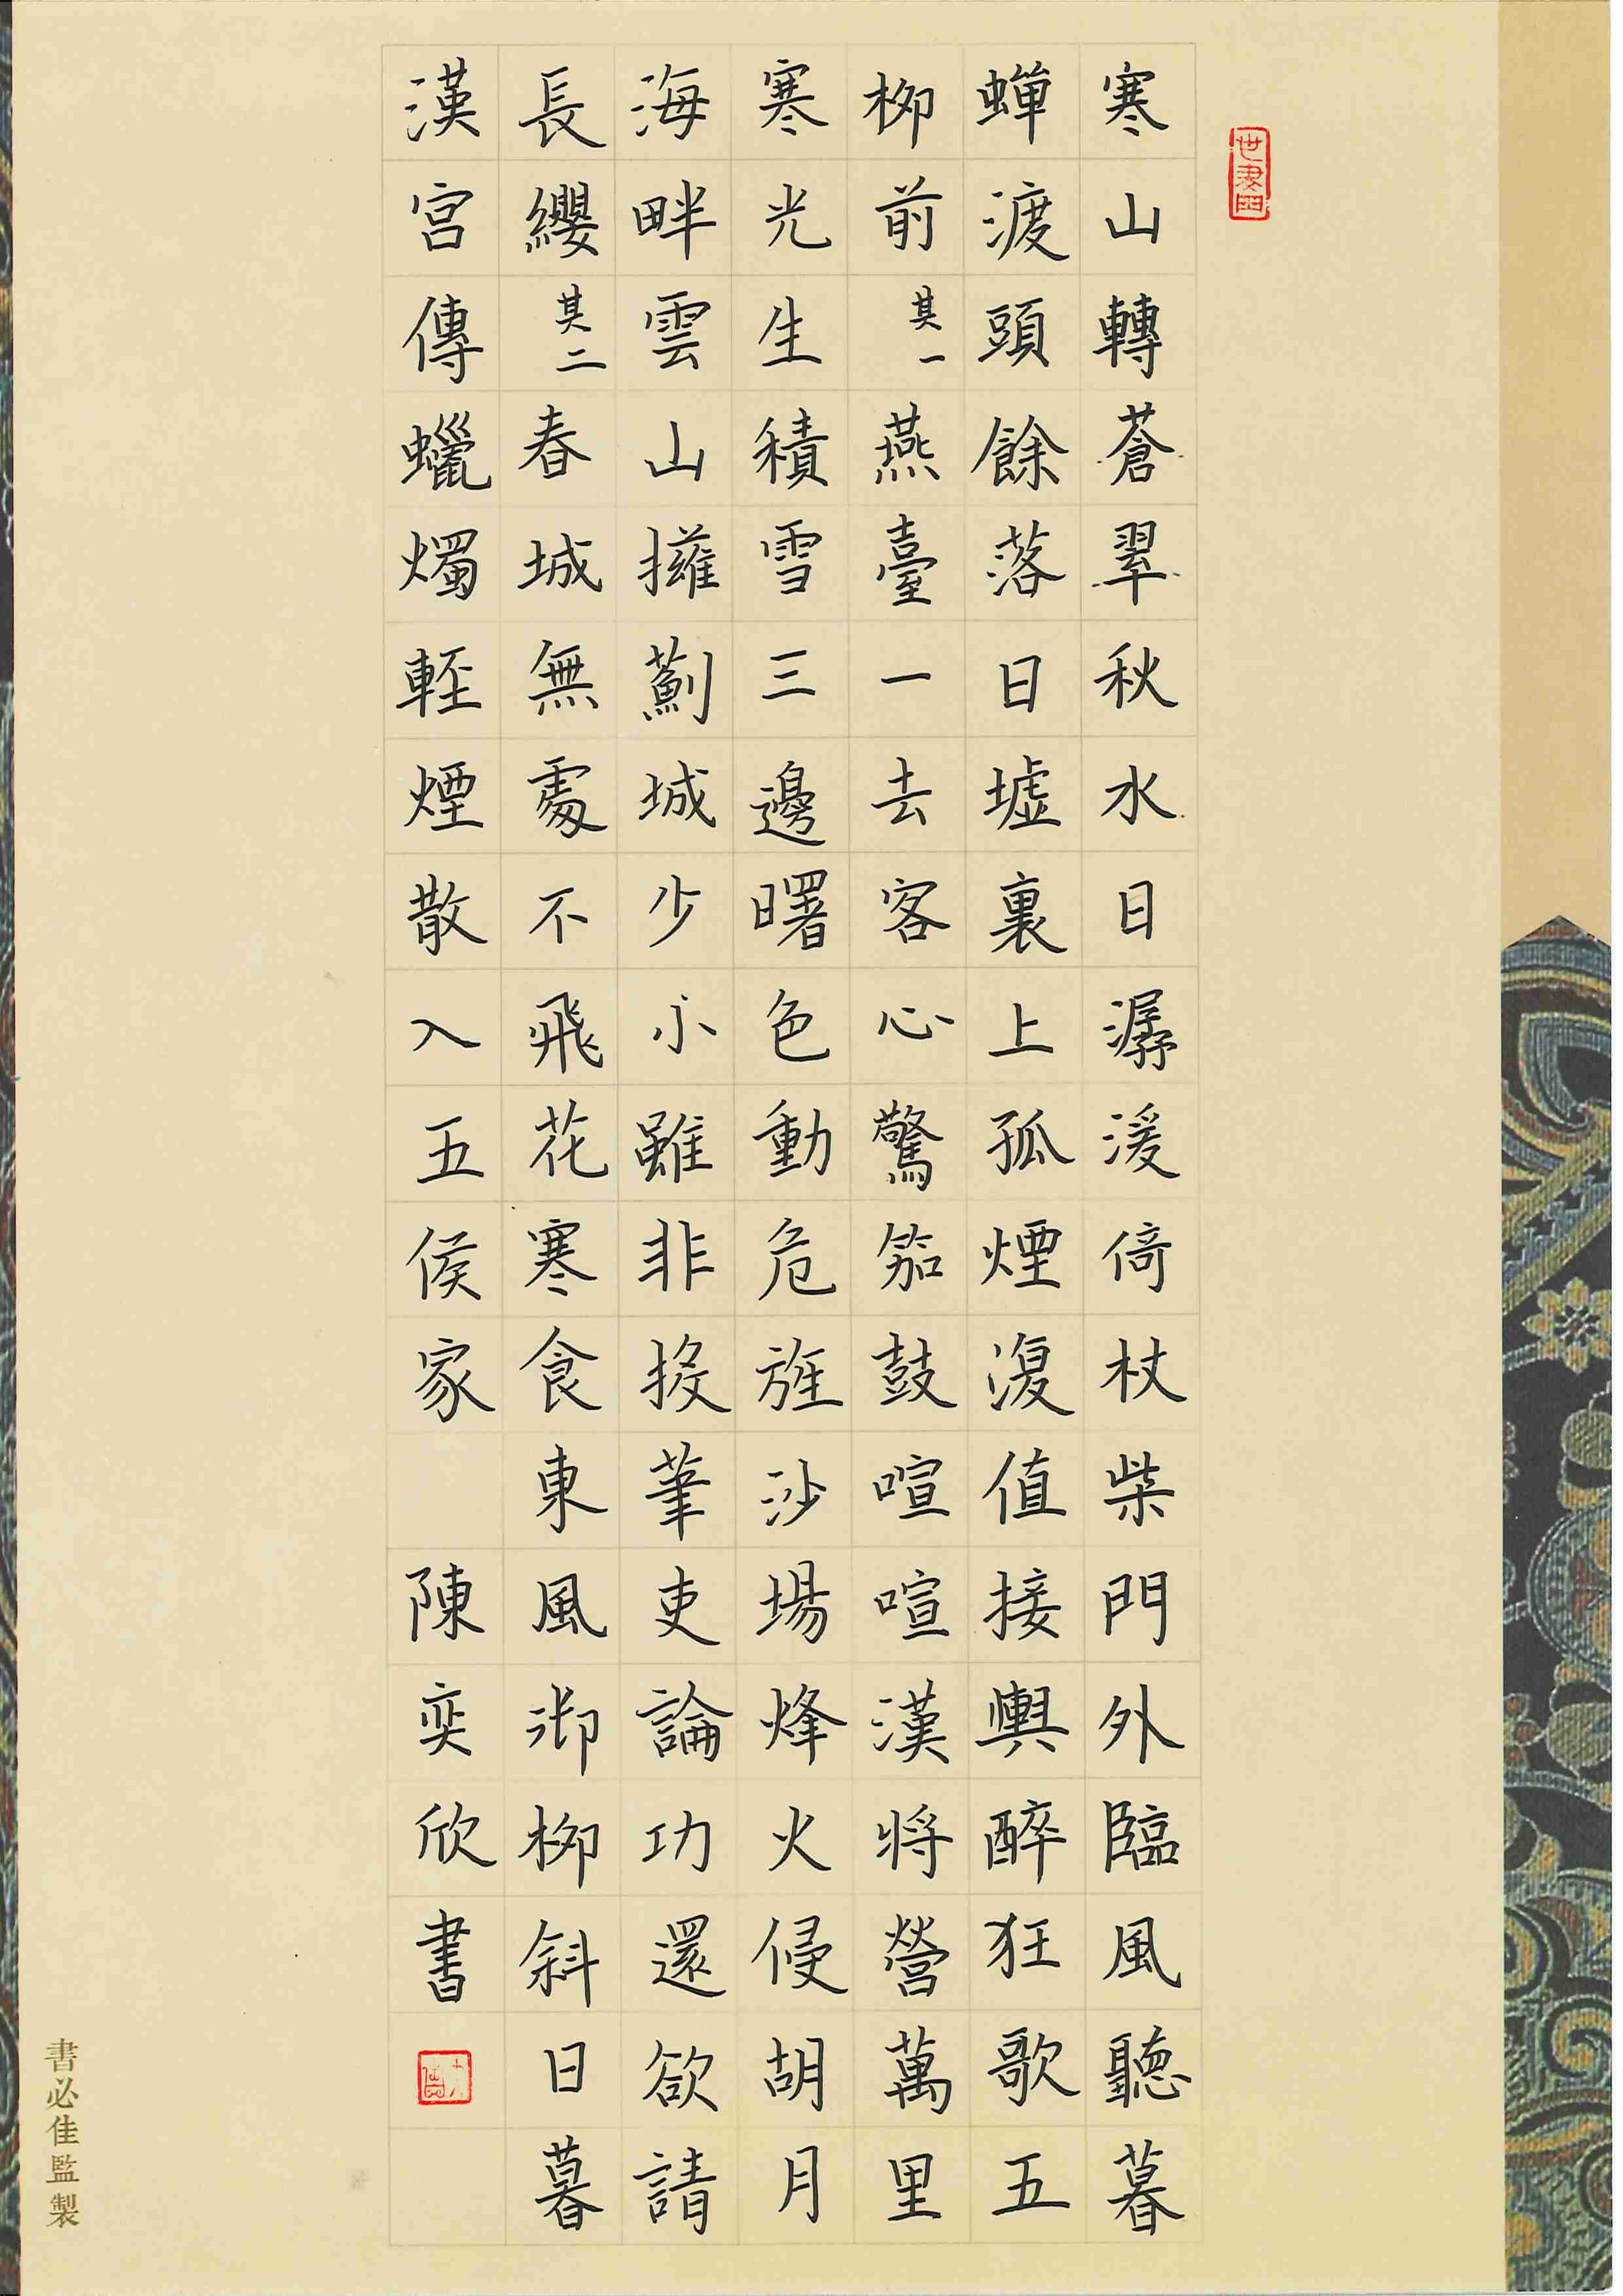 寒山轉蒼翠秋水日潺湲倚杖柴門外臨風聽暮
蟬渡頭餘落日墟裏上孤煙復值接輿醉狂歌五
柳前其一燕臺一去客心驚笳鼓喧喧漢將營萬里
寒光生積雪三邊曙色動危旌沙場烽火侵胡月
海畔雲山擁薊城少小雖非投筆吏論功還欲請
長纓其二春城無處不飛花寒食東風御柳斜日暮
漢宮傳蠟燭輕煙散入五侯家 陳奕欣書
書必佳監製